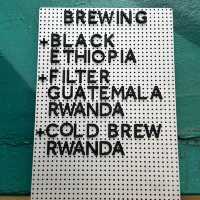 BREWING
+BLACK
ETHIOPIA
+FILTER
GUATEMALA
RWANDA
+COLD BREW
RWANDA